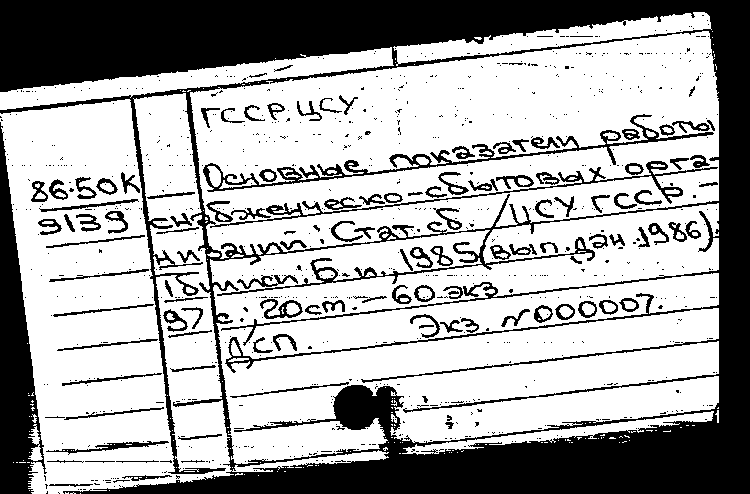 ГССР. ЦСУ.
86-50К
9139
Основные показатели работы
снабженческо-сбытовых орга-
низаций: Стат. сб. / ЦСУ ГССР. –
Тбилиси: Б.и., 1985 (вып. дан. 1986).
97 с.; 20 см. – 60 экз.
ДСП. Экз. №000007.